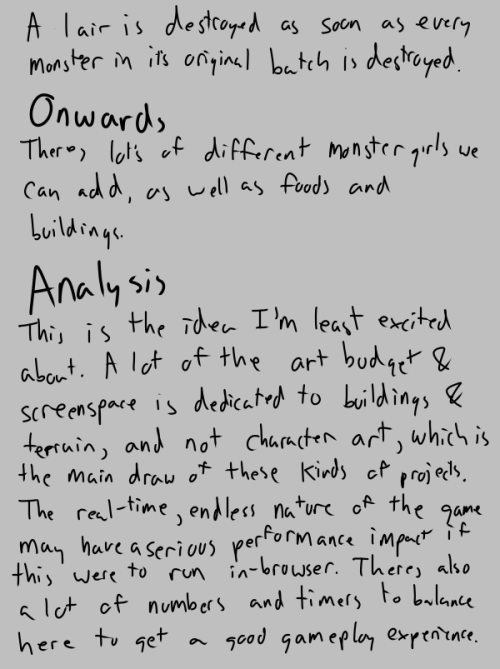 A lair is destroyed as soon as every
monster in it's original batch is destroyed.
Onwards
Theres lots of different monster girls we
can add, as well as foods and
buildings.
Analysis
This is the idea I'm least excited
about. A lot of the art budget &
screenspace is dedicated to buildings &
terrain, and not character art, which is
the main draw of these kinds of projects.
The real-time, endless nature of the game
may have a serious performance impact if
this were to run in-browser. Theres also
a lot of numbers and timers to balance
here to get a good gameplay experience.